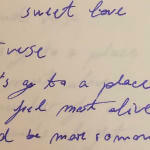 sweet love
Verse
's go to a place
feel most alive
d be more somow